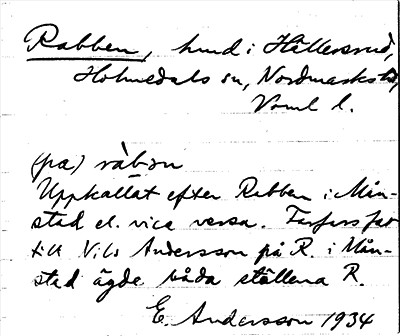 Rabben, hmd i Hällesrud,
Holmedals sn, Nordmarks hd,
Vrml l.
(pa) rab:n
Uppkallat efter Rabben i Mån-
stad el. vice versa. Farfars far
till Nils Andersson på R. i Mån-
stad ägde båda ställena R.
E. Andersson 1934